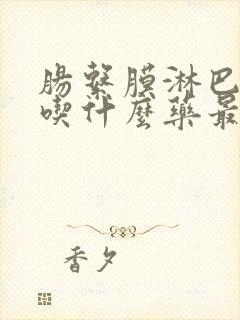 腸繫膜淋巴
喫什麼藥最
香夕